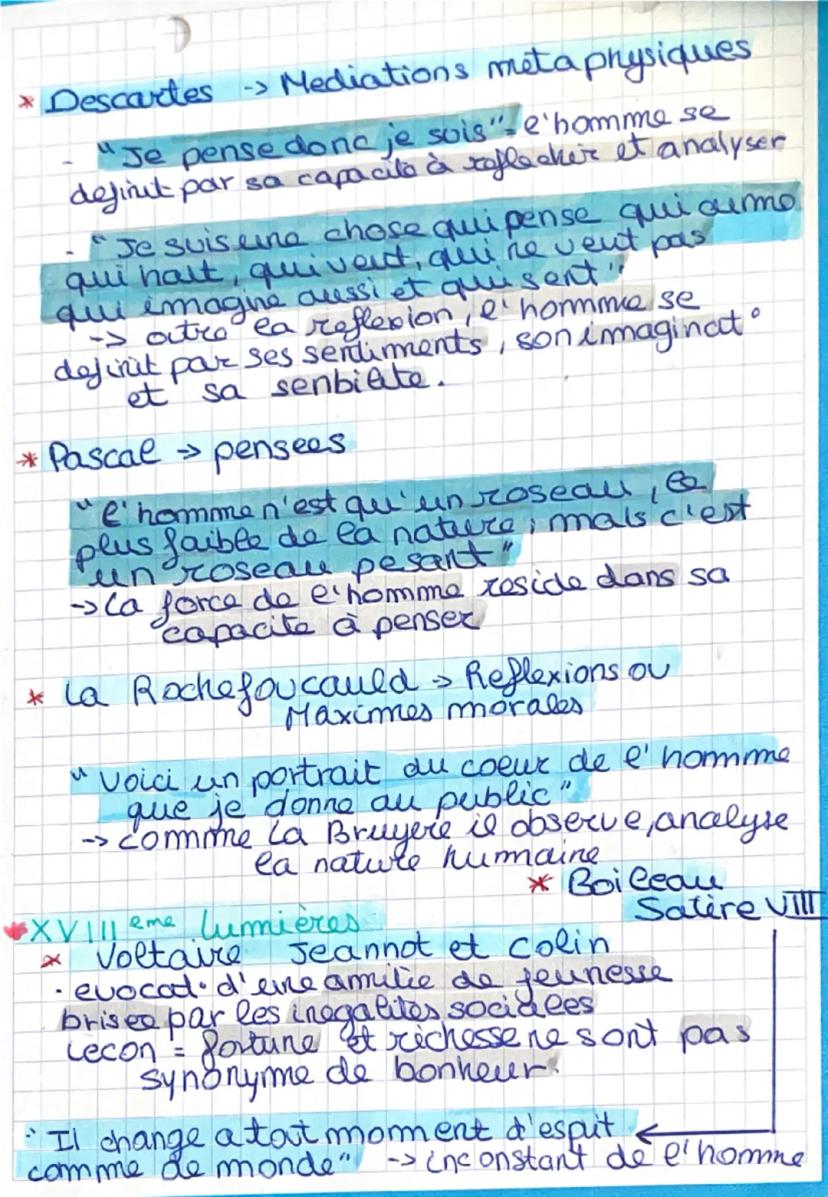 * Descartes -> Mediations metaphysiques
- "Je pense donc je suis" = l'homme se
definit par sa capacite à reflechir et analyser
- "Je suis une chose qui pense qui aime
qui hait, qui veut, qui ne veut pas
qui imagine aussi et qui sent"
-> outre la reflexion, l'homme se
definit par ses sentiments, son imaginat°
et sa senbilite.
* Pascal -> pensees
"l'homme n'est qu'un roseau, le
plus faible de la nature; mais c'est
un roseau pesant"
-> La force de l'homme reside dans sa
capacite à penser
* La Rochefoucauld -> Reflexions ou
Maximes morales
"Voici un portrait du coeur de l'homme
que je donne au public"
-> comme La Bruyere il observe, analyse
la nature humaine
* Boileau
Satire VIII
XVIII eme lumières
* Voltaire Jeannot et Colin
· evocat° d'une amitie de jeunesse
brisee par les inegalites sociales
Lecon = fortune et richesse ne sont pas
synonyme de bonheur.
"Il change a tout moment d'esput
comme de monde" -> inconstant de l'homme